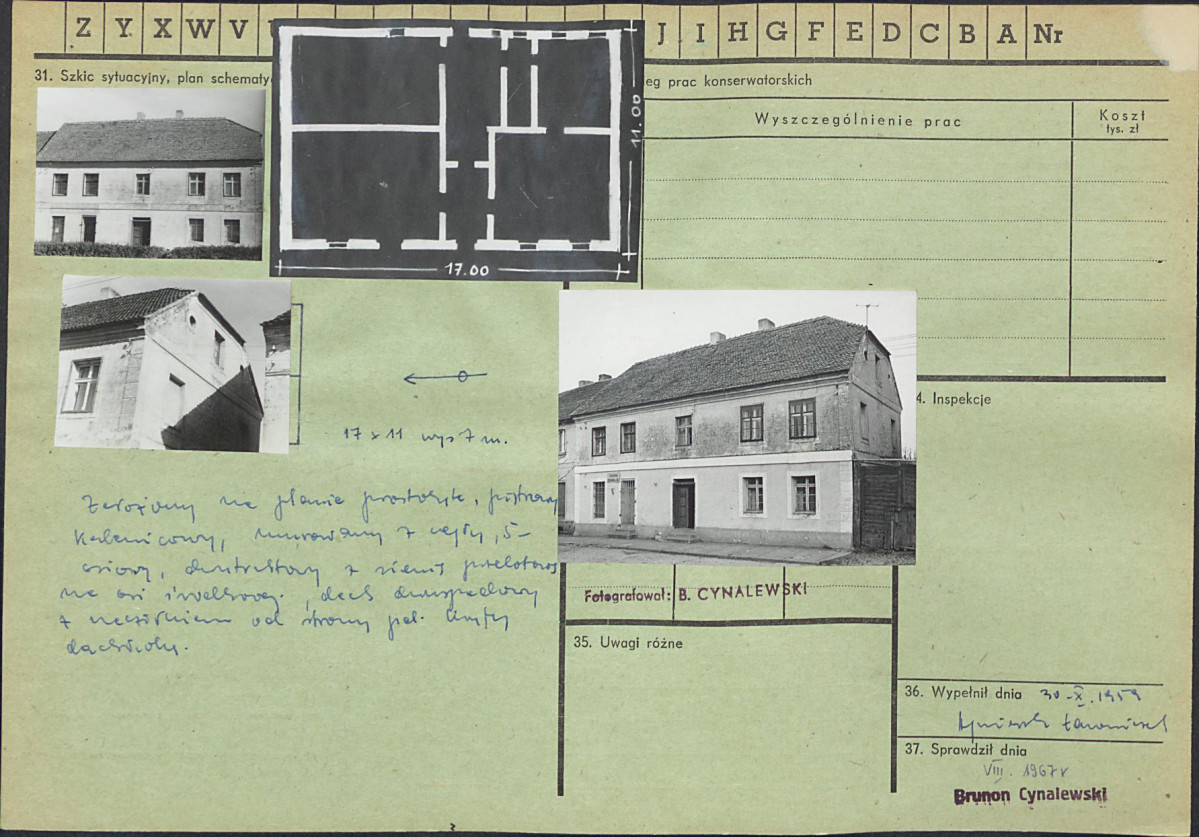 Z Y X W V J I H G F E D C B A Nr
31. Szkic sytuacyjny, plan schematy
eg prac konserwatorskich
Wyszczególnienie prac
Koszt
tys. zł
11.00
17.00
17 x 11 wys 7 m.
4. Inspekcje
Założony na planie prostokąta, piętrowy
kalenicowy, murowany z cegły, 5-
osiowy, dwutraktowy z sienią przelotową
na osi środkowej, dach dwuspadowy
z naczółkiem od strony poł. kryty
dachówką.
Fotografował: B. CYNALEWSKI
35. Uwagi różne
36. Wypełnił dnia 30-X.1959
37. Sprawdził dnia
VIII. 1967 r
Brunon Cynalewski